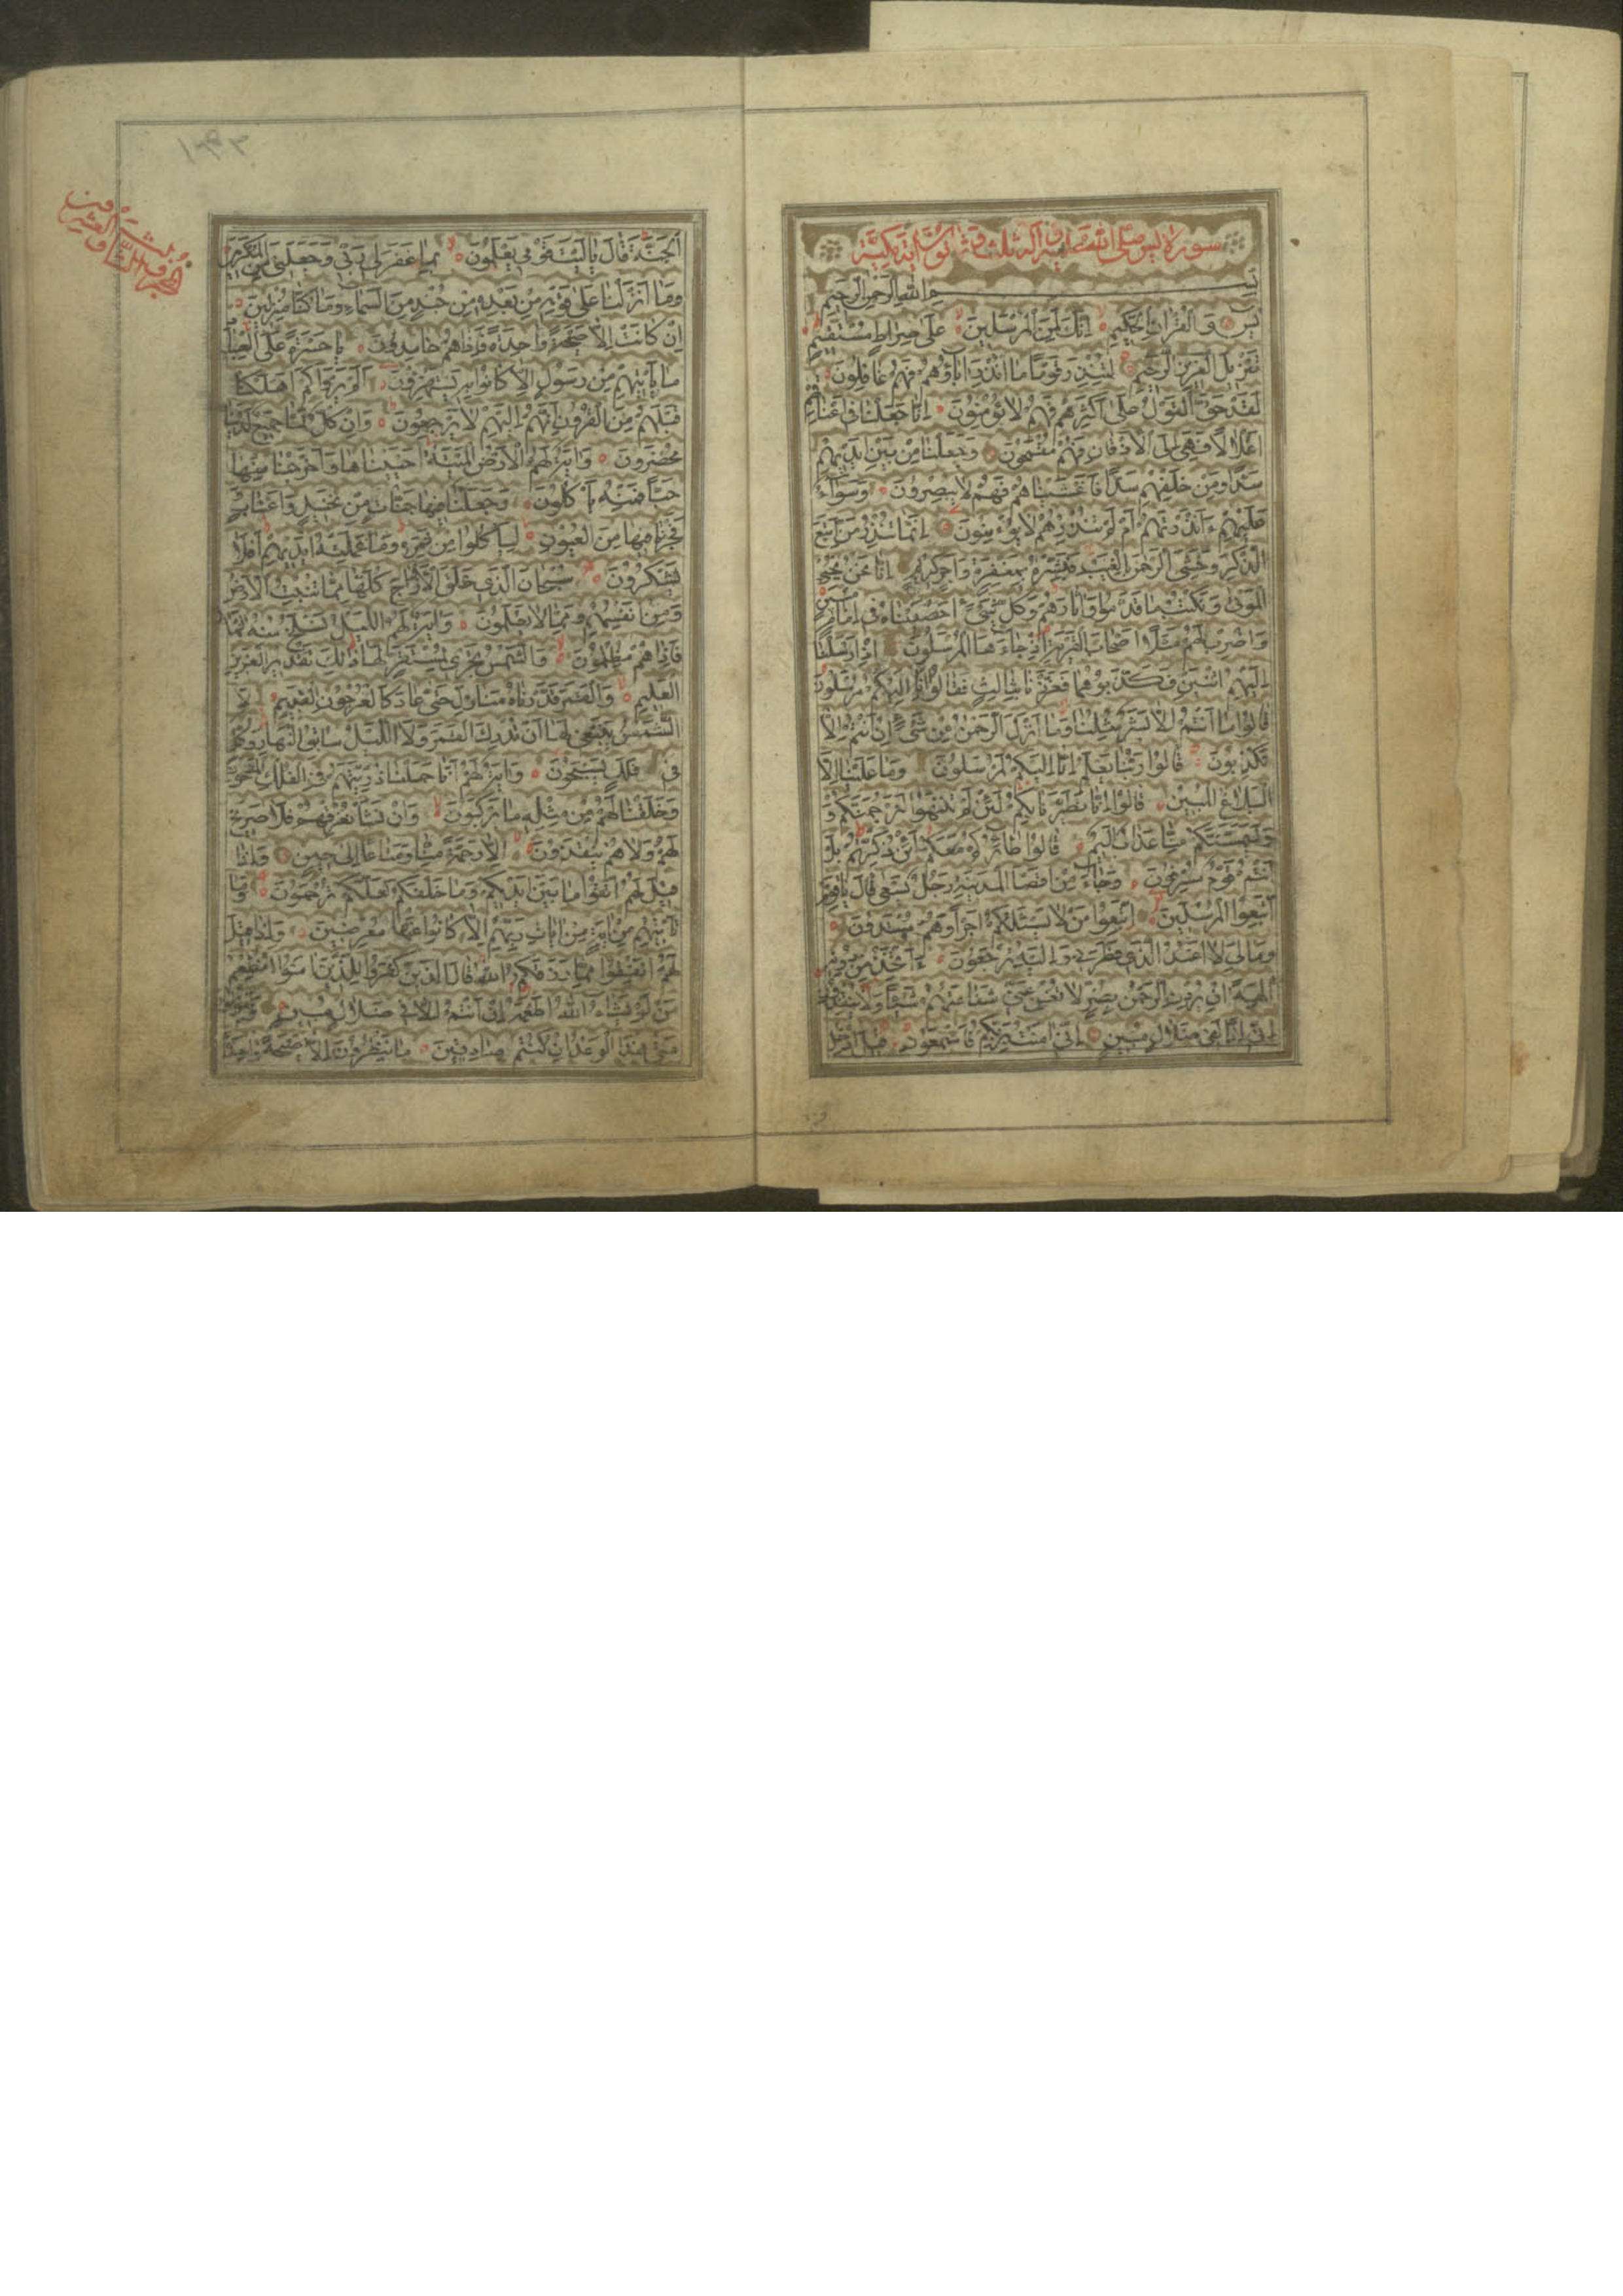 سورة يس صلى الله عليه وآله ثلث وثمانون آية مكية
بسم الله الرحمن الرحيم
يس والقرآن الحكيم إنك لمن المرسلين على صراط مستقيم
تنزيل العزيز الرحيم لتنذر قوما ما أنذر آباؤهم فهم غافلون
لقد حق القول على أكثرهم فهم لا يؤمنون إنا جعلنا في أعناقهم
أغلالا فهي إلى الأذقان فهم مقمحون وجعلنا من بين أيديهم
سدا ومن خلفهم سدا فأغشيناهم فهم لا يبصرون وسواء
عليهم ءأنذرتهم أم لم تنذرهم لا يؤمنون إنما تنذر من اتبع
الذكر وخشي الرحمن بالغيب فبشره بمغفرة وأجر كريم إنا نحن نحيي
الموتى ونكتب ما قدموا وآثارهم وكل شيء أحصيناه في إمام مبين
واضرب لهم مثلا أصحاب القرية إذ جاءها المرسلون إذ أرسلنا
إليهم اثنين فكذبوهما فعززنا بثالث فقالوا إنا إليكم مرسلون
قالوا ما أنتم إلا بشر مثلنا وما أنزل الرحمن من شيء إن أنتم إلا
تكذبون قالوا ربنا يعلم إنا إليكم لمرسلون وما علينا إلا
البلاغ المبين قالوا إنا تطيرنا بكم لئن لم تنتهوا لنرجمنكم و
وليمسنكم منا عذاب أليم قالوا طائركم معكم أئن ذكرتم بل
أنتم قوم مسرفون وجاء من أقصا المدينة رجل يسعى قال يا قوم
اتبعوا المرسلين اتبعوا من لا يسئلكم أجرا وهم مهتدون
وما لي لا أعبد الذي فطرني وإليه ترجعون ءأتخذ من دونه
آلهة إن يردن الرحمن بضر لا تغن عني شفاعتهم شيئا ولا ينقذون
إني إذا لفي ضلال مبين إني آمنت بربكم فاسمعون قيل ادخل
الجنة قال يا ليت قومي يعلمون بما غفر لي ربي وجعلني من المكرمين
وما أنزلنا على قومه من بعده من جند من السماء وما كنا منزلين
إن كانت إلا صيحة واحدة فإذا هم خامدون يا حسرة على العباد
ما يأتيهم من رسول إلا كانوا به يستهزؤن ألم يروا كم أهلكنا
قبلهم من القرون أنهم إليهم لا يرجعون وإن كل لما جميع لدينا
محضرون وآية لهم الأرض الميتة أحييناها وأخرجنا منها
حبا فمنه يأكلون وجعلنا فيها جنات من نخيل وأعناب و
فجرنا فيها من العيون ليأكلوا من ثمره وما عملته أيديهم أفلا
يشكرون سبحان الذي خلق الأزواج كلها مما تنبت الأرض
ومن أنفسهم ومما لا يعلمون وآية لهم الليل نسلخ منه النهار
فإذا هم مظلمون والشمس تجري لمستقر لها ذلك تقدير العزيز
العليم والقمر قدرناه منازل حتى عاد كالعرجون القديم لا
الشمس ينبغي لها أن تدرك القمر ولا الليل سابق النهار وكل
في فلك يسبحون وآية لهم أنا حملنا ذريتهم في الفلك المشحون
وخلقنا لهم من مثله ما يركبون وإن نشأ نغرقهم فلا صريخ
لهم ولا هم ينقذون إلا رحمة منا ومتاعا إلى حين وإذا
قيل لهم اتقوا ما بين أيديكم وما خلفكم لعلكم ترحمون وما
تأتيهم من آية من آيات ربهم إلا كانوا عنها معرضين وإذا قيل
لهم أنفقوا مما رزقكم الله قال الذين كفروا للذين آمنوا أنطعم
من لو يشاء الله أطعمه إن أنتم إلا في ضلال مبين ويقولون
متى هذا الوعد إن كنتم صادقين ما ينظرون إلا صيحة واحدة
الجزء الثالث والعشرين